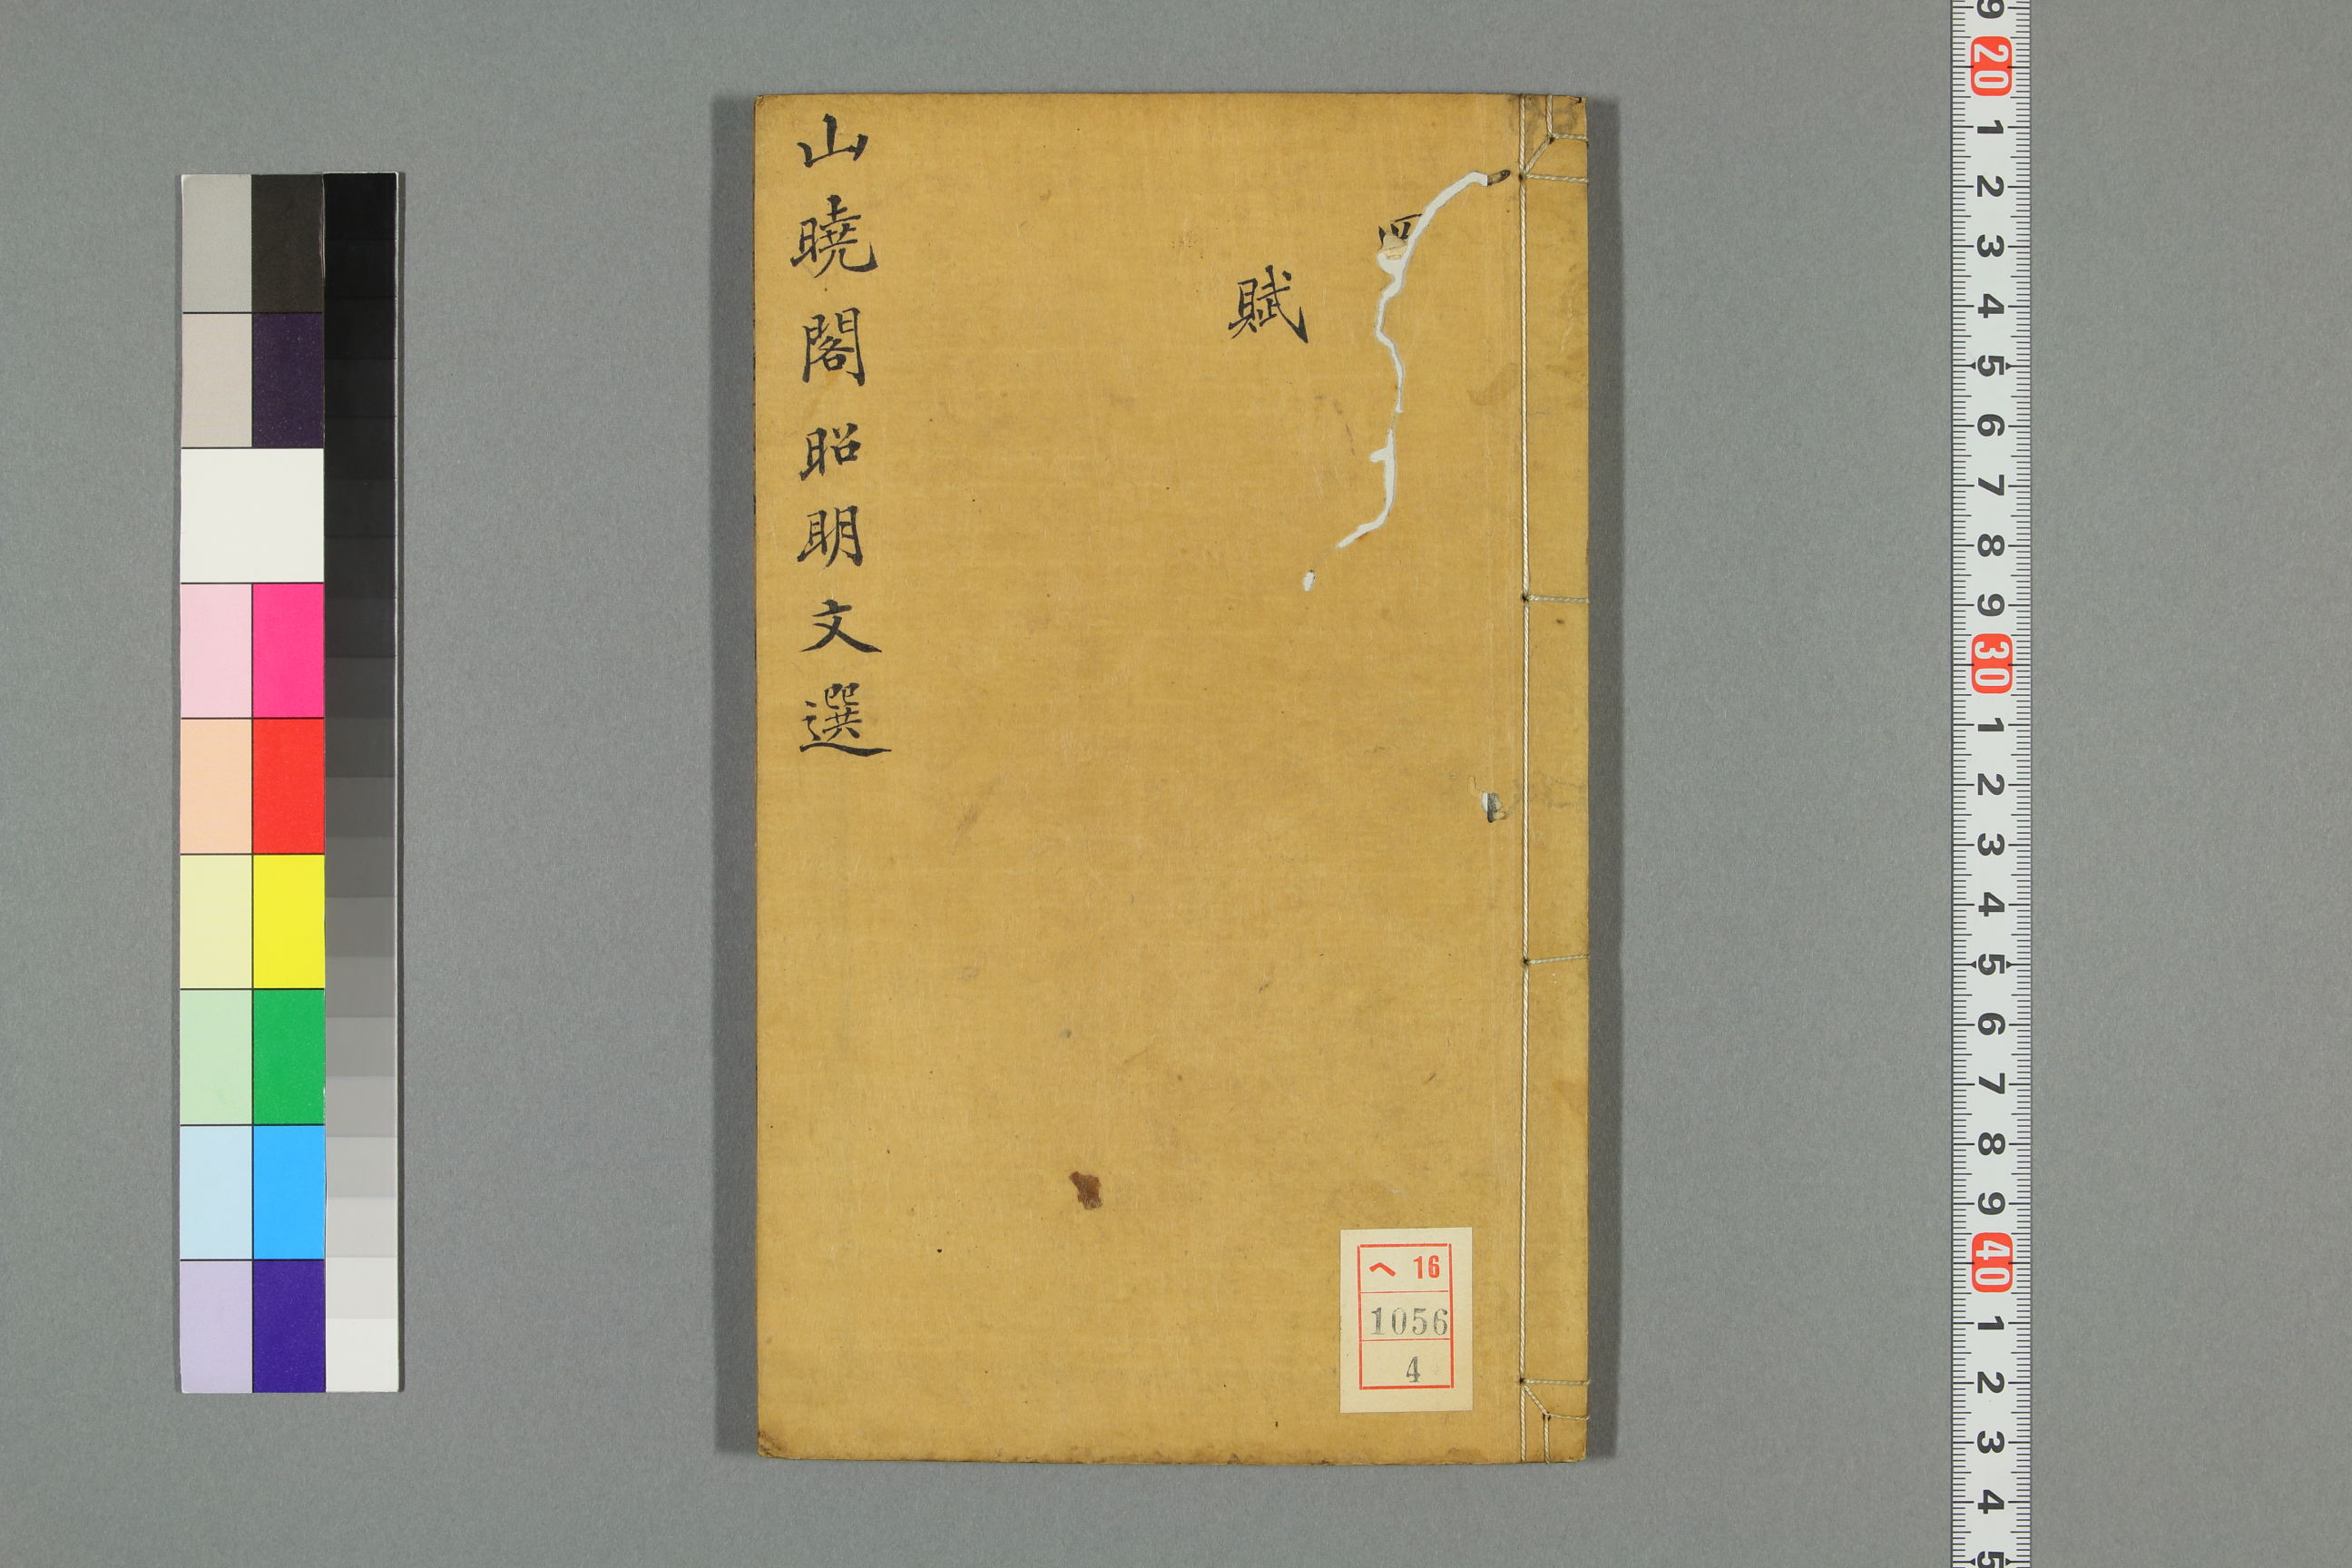 四
賦
山曉閣昭明文選
ヘ 16
1056
4
9
20
1
2
3
4
5
6
7
8
9
30
1
2
3
4
5
6
7
8
9
40
1
2
3
4
5